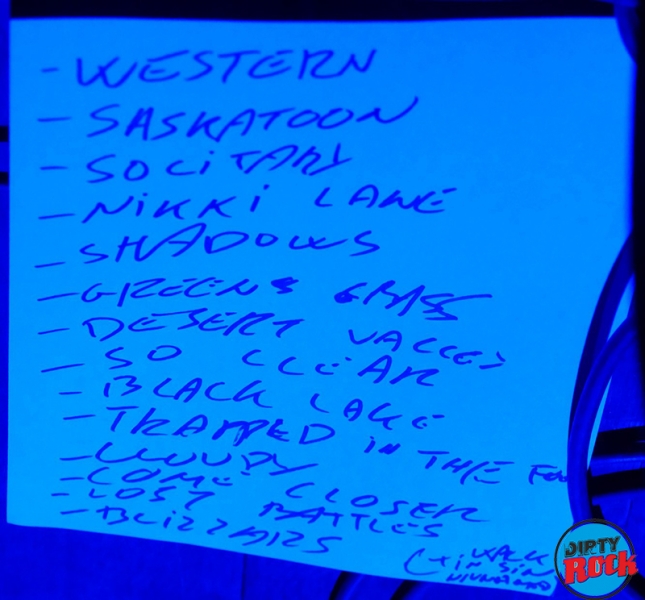 - WESTERN
- SASKATOON
- SOLiTARY
- NiKKi LANE
- SHADOWS
- GREENS GRASS
- DESERT VALLEY
- SO CLEAR
- BLACK LAKE
- TRAPPED iN THE
- CLOUDY
- COME CLOSER
- LOST BATTLES
- BLiZZARS
WALK
DIRTY
Rock